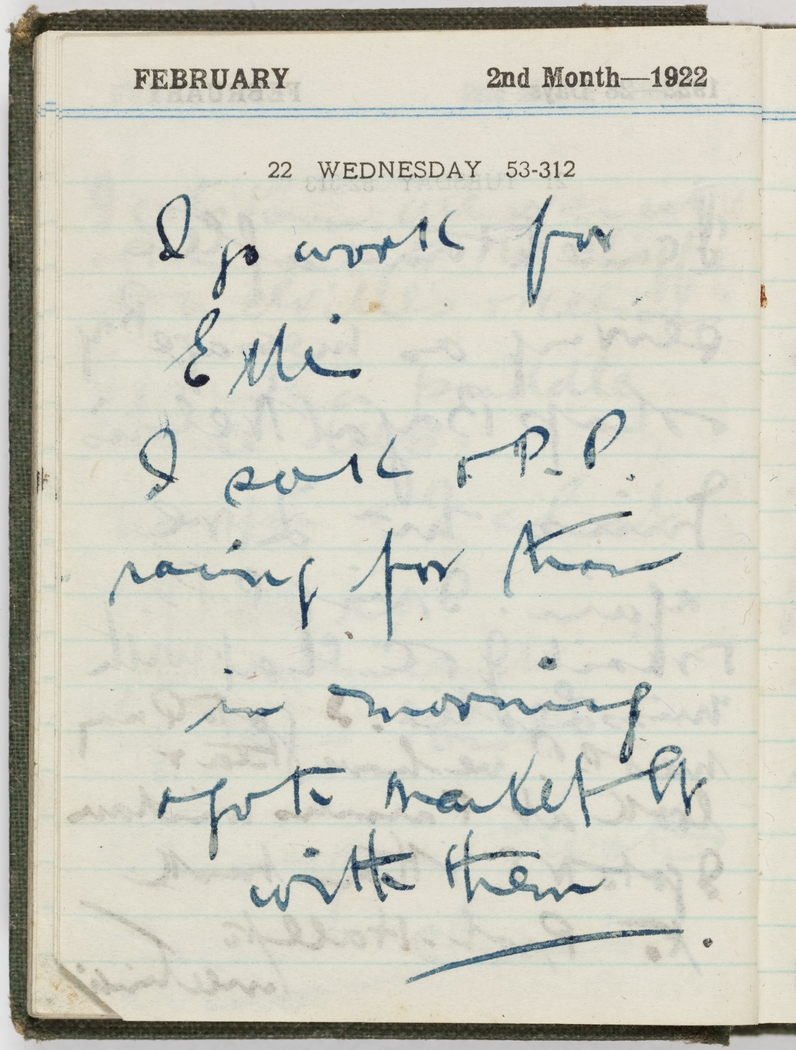 FEBRUARY 2nd Month—1922
22 WEDNESDAY 53-312
I go work for
Ellis
I sort & P.P.
racing for them
in morning
& go to market St
with them